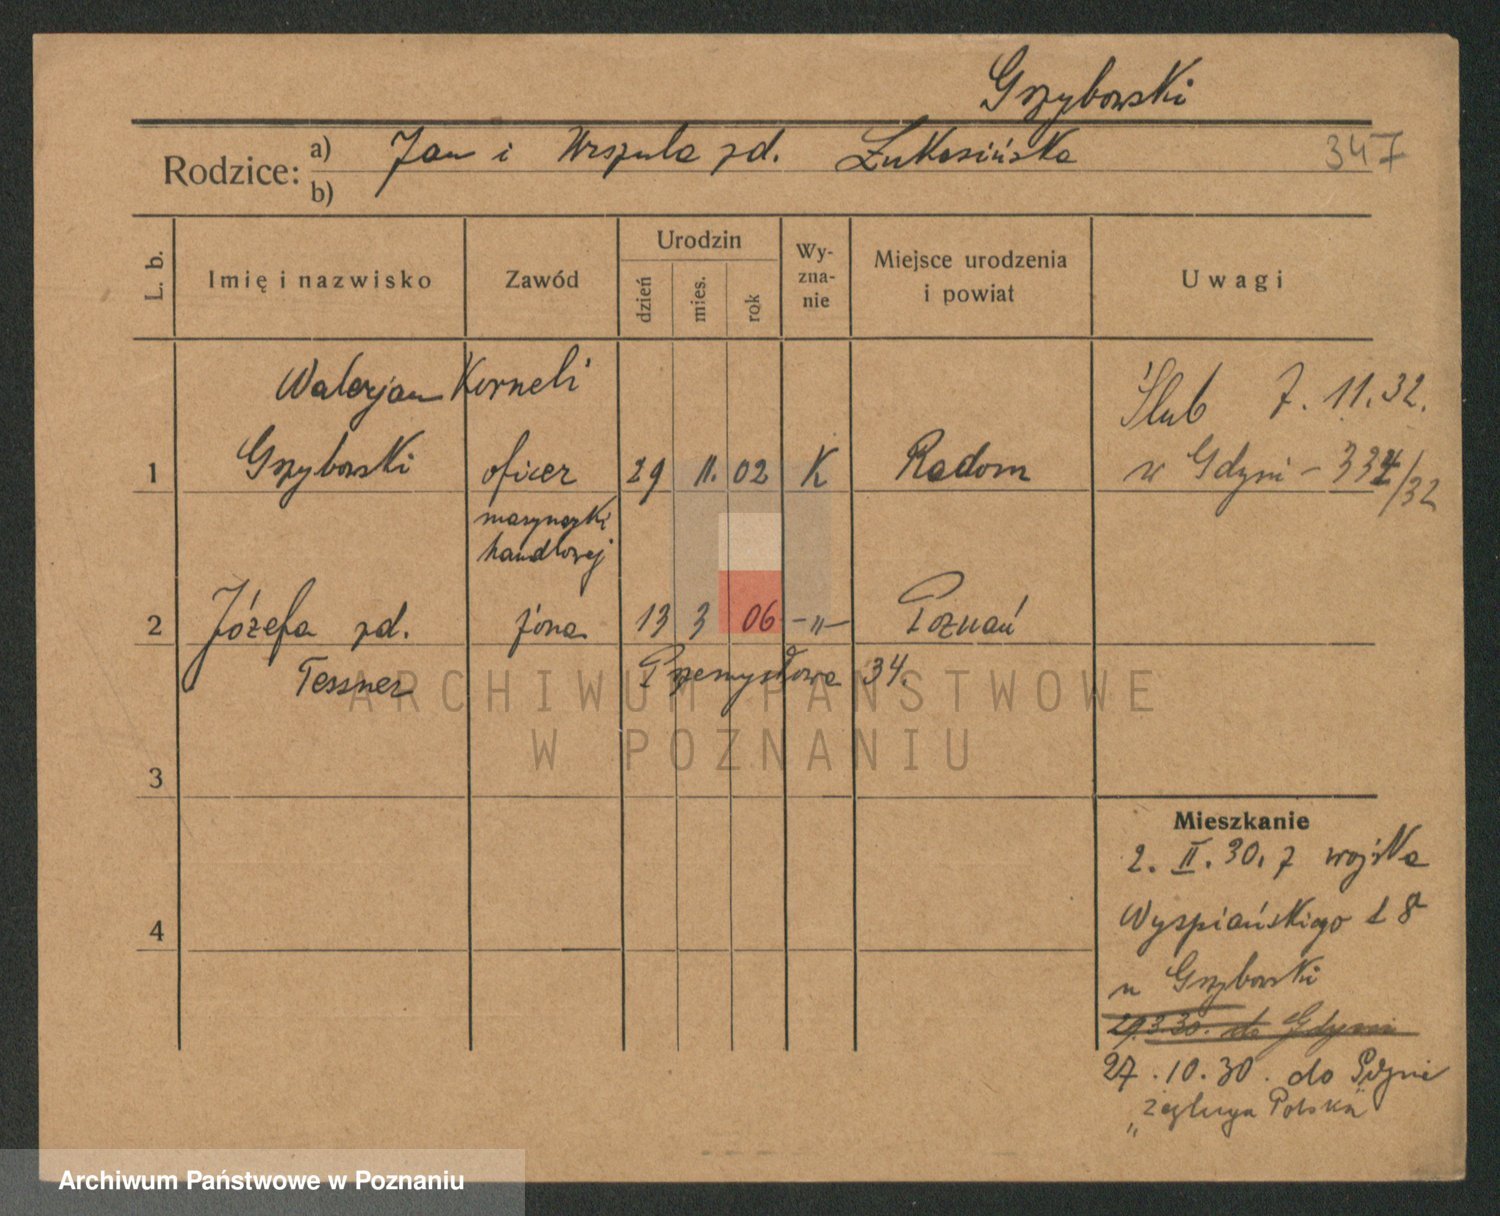 Grzybowski
Rodzice: a) Jan i Urszula zd. Łukasińska 347
b)
L. b. Imię i nazwisko Zawód Urodzin dzień mies. rok Wy-zna-nie Miejsce urodzenia i powiat Uwagi
Walerjan Korneli Ślub 7. 11. 32.
1 Grzybowski oficer 29 11. 02 K Radom w Gdyni - 334/32
marynarki
handlowej
2 Józefa zd. żona 13 3 06 -"- Poznań
Tessner Przemysłowa 34.
3
Mieszkanie
2. II. 30. z wojska
4 Wyspiańskiego 18
u Grzybowski
29.3.30. do Gdyni
27. 10. 30. do Gdyni
"Żegluga Polska"
ARCHIWUM PAŃSTWOWE
W POZNANIU
Archiwum Państwowe w Poznaniu